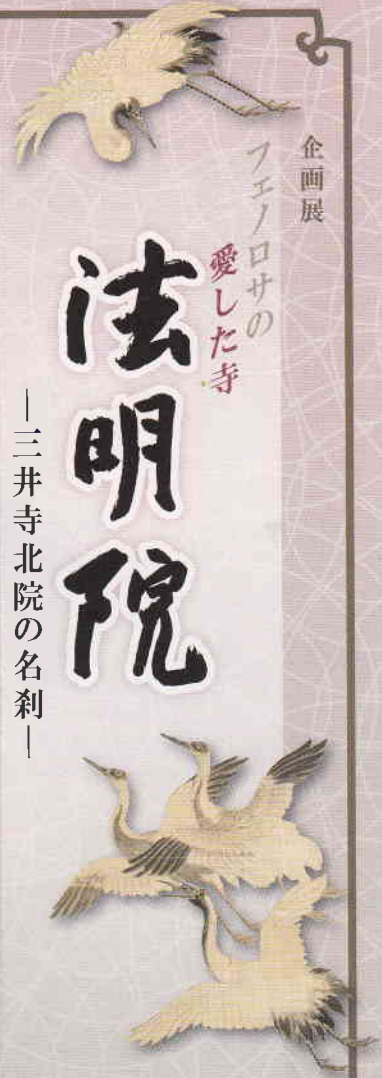 企画展
フェノロサの
愛した寺
法明院
―三井寺北院の名刹―